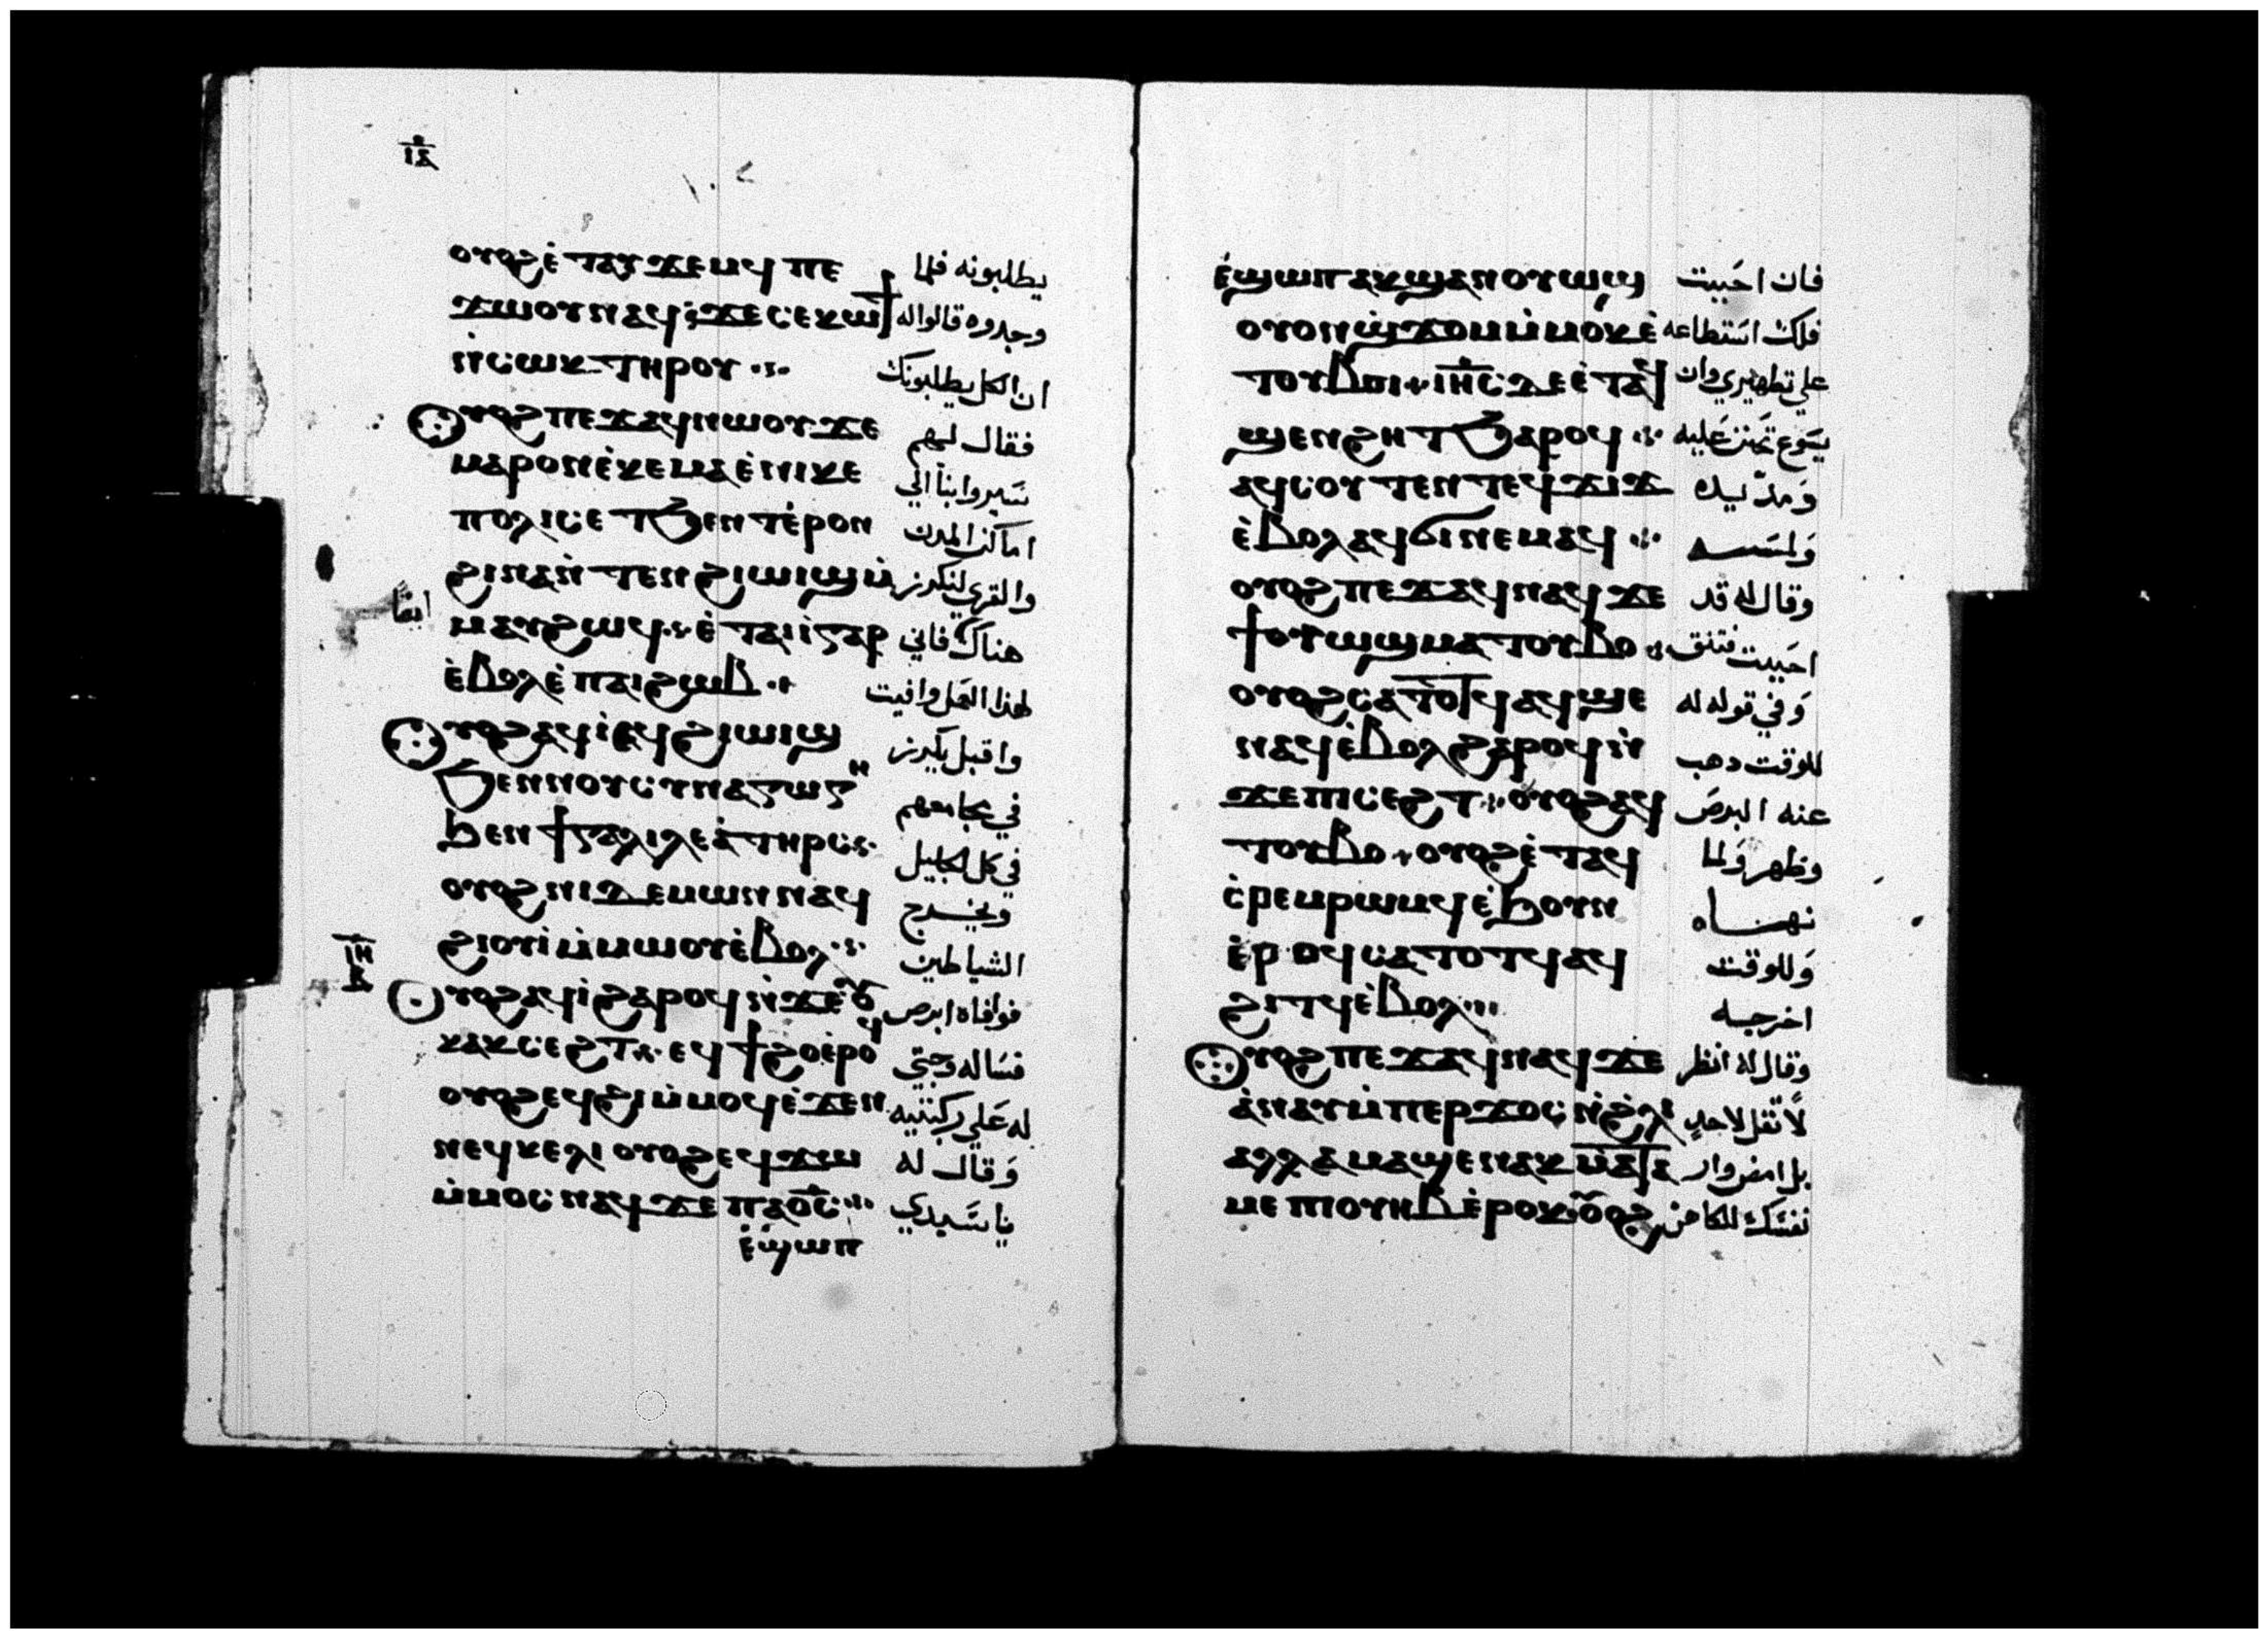 ⲓⲇ
ⲟⲩⲟϩ ⲉ̇ⲧⲁⲩϫⲉⲙϥ ⲡⲉ يطلبونه فلما
ϫⲱⲟⲩ ⲛⲁϥ ϫⲉ ⲥⲉⲕⲱϯ وجدوه قالوا له
ⲛ̇ⲥⲱⲕ ⲧⲏⲣⲟⲩ ان الكل يطلبونك
ⲟⲩⲟϩ ⲡⲉϫⲁϥ ⲛⲱⲟⲩ ϫⲉ فقال لهم
ⲙⲁⲣⲟⲛ ⲉ̇ⲕⲉⲙⲁ ⲉ̇ⲛⲓⲕⲉ سيروا بنا الي
ⲡⲟⲗⲓⲥ ⲉⲧϧⲉⲛⲧ ⲉ̇ⲣⲟⲛ اماكن المدن
ϩⲓⲛⲁ ⲛ̇ⲧⲉⲛϩⲓⲱⲓϣ ⲙ̇ والقري لنكرز
ⲙⲁⲩ ϩⲱϥ ⲉ̇ⲧⲁⲓⲓ̇ ⲅⲁⲣ هناك فاني ايضا
ⲉ̇ⲃⲟⲗ ⲉ̇ⲡⲁⲓϩⲱⲃ لهذا العمل وافيت
ⲟⲩⲟϩ ⲁϥⲓ̇ ⲉϥϩⲓⲱⲓϣ واقبل يكرز
ϧⲉⲛ ⲛⲟⲩⲥⲩⲛⲁⲅⲱⲅⲏ في مجامعهم
ϧⲉⲛ ϯⲅⲁⲗⲓⲗⲉⲁ̇ ⲧⲏⲣⲥ في كل الجليل
ⲟⲩⲟϩ ⲛⲓⲇⲉⲙⲱⲛ ⲛⲁϥ ويخرج
ϩⲓⲟⲩⲓ̇ ⲙ̇ⲙⲱⲟⲩ ⲉ̇ⲃⲟⲗ الشياطين
ⲓⲏ
ⲟⲩⲟϩ ⲁϥⲓ̇ ϩⲁⲣⲟϥ ⲛ̇ϫⲉ ⲟⲩ فوافاه ابرص
ⲕⲁⲕⲥⲉϩⲧ ⲉϥϯϩⲟ ⲉ̇ⲣⲟϥ فساله وجثي
ⲟⲩⲟϩ ⲉϥϩⲓ ⲙ̇ⲙⲟϥ ⲉ̇ϫⲉⲛ له علي ركبتيه
ⲛⲉϥⲕⲉⲗⲓ ⲟⲩⲟϩ ⲉϥϫⲱ وقال له
ⲙ̇ⲙⲟⲥ ⲛⲁϥ ϫⲉ ⲡⲁⲟ̅ⲥ̅ يا سيدي
ⲉ̇ϣⲱⲡ
ⲉ̇ϣⲱⲡ ⲁⲕϣⲁⲛⲟⲩⲱϣ فان احببت
ⲟⲩⲟⲛ ϣϫⲟⲙ ⲙ̇ⲙⲟⲕ ⲉ̇ فلك استطاعه
ⲧⲟⲩⲃⲟⲓ ⲓⲏ̅ⲥ̅ ⲇⲉ ⲉ̇ⲧⲁϥ علي تطهيري وان
ϣⲉⲛϩⲏⲧ ϧⲁⲣⲟϥ يسوع تحنن عليه
ⲁϥⲥⲟⲩⲧⲉⲛ ⲧⲉϥϫⲓϫ ومد يده
ⲉ̇ⲃⲟⲗ ⲁϥϭⲓ ⲛⲉⲙⲁϥ ولمسه
ⲟⲩⲟϩ ⲡⲉϫⲁϥ ⲛⲁϥ ϫⲉ وقال له قد
ϯⲟⲩⲱϣ ⲙⲁⲧⲟⲩⲃⲟ احببت فتنق
ⲟⲩⲟϩ ⲥⲁⲧⲟⲧϥ ⲁϥϣⲉ وفي قوله له
ⲛⲁϥ ⲉ̇ⲃⲟⲗ ϩⲁⲣⲟϥ ⲛ̇ للوقت دهب
ϫⲉ ⲡⲓⲥⲉϩⲧ ⲟⲩⲟϩ ⲁϥ عنه البرص
ⲧⲟⲩⲃⲟ ⲟⲩⲟϩ ⲉ̇ⲧⲁϥ وطهر ولما
ⲉ̇ⲣⲉⲙⲣⲱⲙϥ ⲉ̇ϧⲟⲩⲛ نهاه
ⲉ̇ⲣⲟϥ ⲥⲁⲧⲟⲧϥ ⲁϥ وللوقت
ϩⲓⲧϥ ⲉ̇ⲃⲟⲗ اخرجه
ⲟⲩⲟϩ ⲡⲉϫⲁϥ ⲛⲁϥ ϫⲉ وقال له انظر
ⲁ̇ⲛⲁⲩ ⲙ̇ⲡⲉⲣϫⲟⲥ ⲛ̇ϩ̇ⲗⲓ لا تقل لاحد
ⲁⲗⲗⲁ ⲙⲁϣⲉⲛⲁⲕ ⲙ̇ⲁⲧⲁ بل امض وار
ⲙⲉ ⲡⲓⲟⲩⲏⲃ ⲉ̇ⲣⲟⲕ ⲟⲩⲟϩ نفسك للكاهن